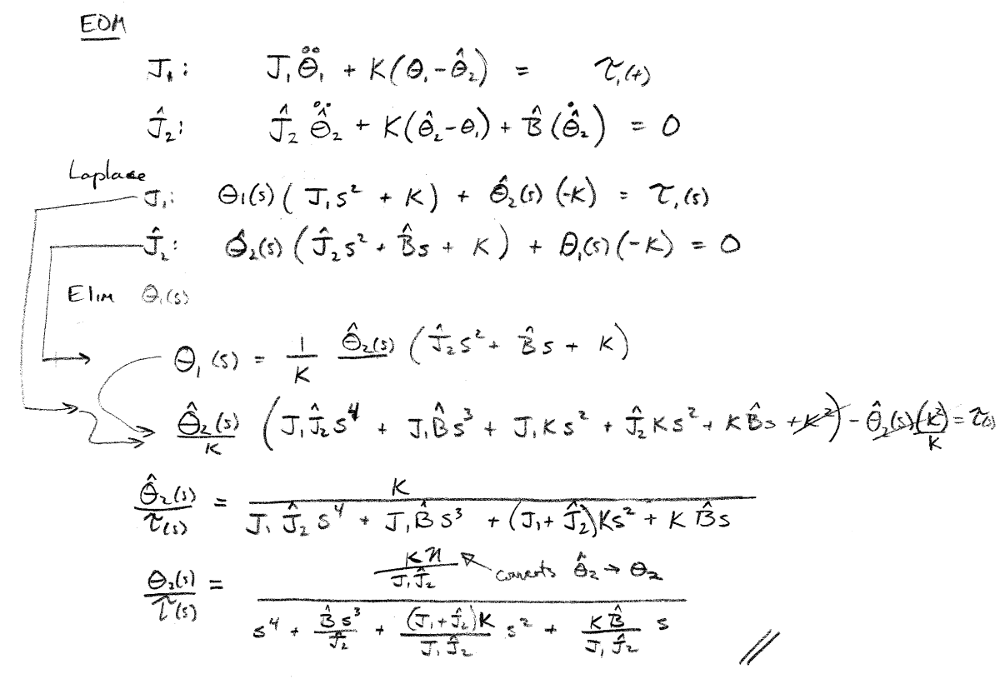 EOM
J₁: J₁θ̈₁ + K(θ₁-θ̂₂) = τ₁(t)
Ĵ₂: Ĵ₂ θ̂̈₂ + K(θ̂₂-θ₁) + B̂(θ̂̇₂) = 0
Laplace
J₁: Θ₁(s)(J₁s² + K) + Θ̂₂(s)(-K) = τ₁(s)
Ĵ₂: Θ̂₂(s)(Ĵ₂s² + B̂s + K) + Θ₁(s)(-K) = 0
Elim Θ₁(s)
Θ₁(s) = 1/K Θ̂₂(s) (Ĵ₂s² + B̂s + K)
Θ̂₂(s)/K (J₁Ĵ₂s⁴ + J₁B̂s³ + J₁Ks² + Ĵ₂Ks² + KB̂s + K²) - Θ̂₂(s)(K²)/K = τ(s)
Θ̂₂(s)/τ(s) = K / J₁Ĵ₂s⁴ + J₁B̂s³ + (J₁+Ĵ₂)Ks² + KB̂s
Θ₂(s)/τ(s) = Kn/J₁Ĵ₂ / s⁴ + B̂s³/Ĵ₂ + (J₁+Ĵ₂)K/J₁Ĵ₂ s² + KB̂/J₁Ĵ₂ s
converts θ̂₂ → θ₂
//